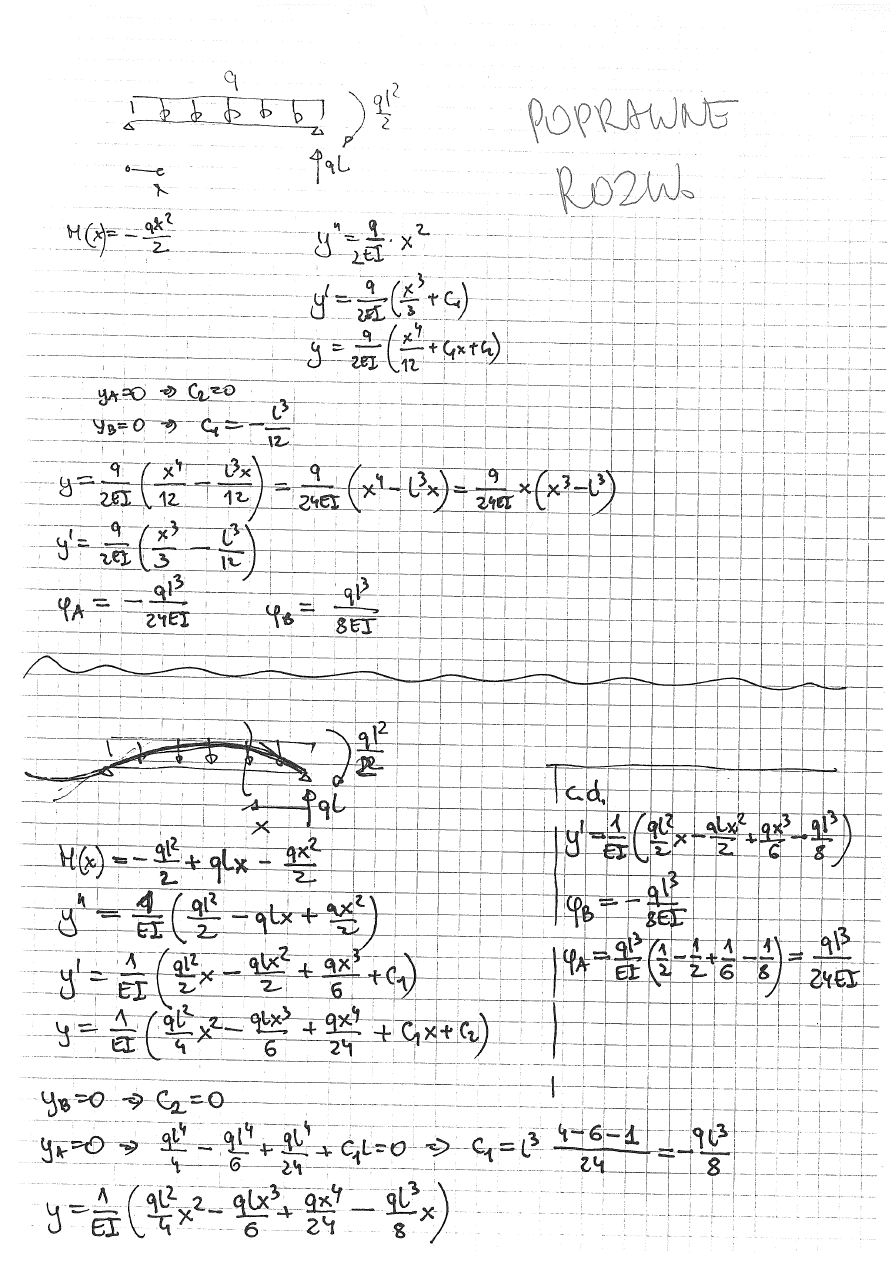 q
ql²/2
POPRAWNE
ROZW.
qL
x
M(x) = - qx²/2
y" = q/2EI · x²
y' = q/2EI (x³/3 + C₁)
y = q/2EI (x⁴/12 + C₁x + C₂)
y_A=0 ⇒ C₂=0
y_B=0 ⇒ C₁ = - L³/12
y = q/2EI (x⁴/12 - L³x/12) = q/24EI (x⁴ - L³x) = q/24EI x (x³ - L³)
y' = q/2EI (x³/3 - L³/12)
φ_A = - ql³/24EI φ_B = ql³/8EI
qL
x
M(x) = - ql²/2 + qLx - qx²/2
y" = 1/EI (ql²/2 - qLx + qx²/2)
y' = 1/EI (ql²/2 x - qLx²/2 + qx³/6 + C₁)
y = 1/EI (qL²/4 x² - qLx³/6 + qx⁴/24 + C₁x + C₂)
y_B=0 ⇒ C₂=0
y_A=0 ⇒ qL⁴/4 - qL⁴/6 + qL⁴/24 + C₁L=0 ⇒ C₁ = L³ 4-6-1/24 = - qL³/8
y = 1/EI (qL²/4 x² - qLx³/6 + qx⁴/24 - qL³/8 x)
c.d.
y' = 1/EI (qL²/2 x - qLx²/2 + qx³/6 - ql³/8)
φ_B = - ql³/8EI
φ_A = ql³/EI (1/2 - 1/2 + 1/6 - 1/8) = ql³/24EI